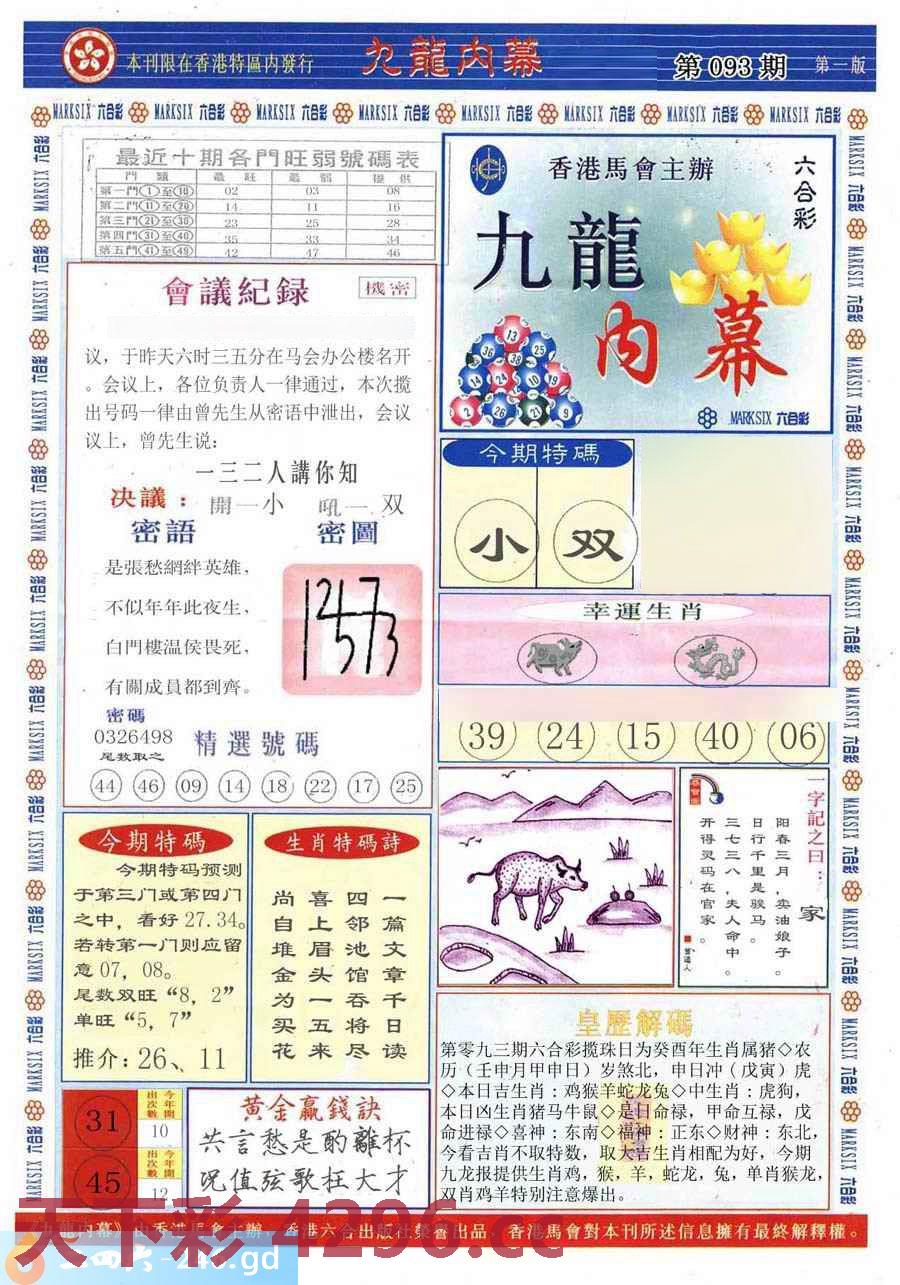 本刊限在香港特區内發行
九龍内幕
第 093 期
第一版
MARKSIX 六合彩
最近十期各門旺弱號碼表
門 類 最 旺 最 弱 提 供
第一門①至⑩ 02 03 08
第二門⑪至⑳ 14 11 16
第三門㉑至㉚ 23 25 28
第四門㉛至㊵ 35 33 34
第五門㊶至㊾ 42 47 46
會議紀録
機密
议，于昨天六时三五分在马会办公楼名开
。会议上，各位负责人一律通过，本次揽
出号码一律由曾先生从密语中泄出，会议
议上，曾先生说：
一三二人講你知
决議：開一小 吼一双
密語
密圖
是張愁網絆英雄，
不似年年此夜生，
白門樓温侯畏死，
有關成員都到齊。
密碼
0326498
尾数取之
精選號碼
44 46 09 14 18 22 17 25
香港馬會主辦
六合彩
九龍
内幕
13
36 38 25
14 24 10 19
2 26 21 9
MARKSIX 六合彩
今期特碼
小 双
幸運生肖
39 24 15 40 06
一字記之曰：家
阳春三月，卖油娘子。
日行千里是骏马。
三七三八，夫人命中。
开得灵码在官家。
曾道人
今期特碼
今期特码预测
于第三门或第四门
之中，看好 27.34。
若转第一门则应留
意 07，08。
尾数双旺“8，2”
单旺“5，7”
推介：26、11
生肖特碼詩
一篇文章千日读
四邻池馆吞将尽
喜上眉头一五来
尚自堆金为买花
31
今年開
出次數
10
45
今年開
出次數
12
黄金赢錢訣
共言愁是酌離杯
况值弦歌枉大才
皇歷解碼
第零九三期六合彩揽珠日为癸酉年生肖属猪◇农
历（壬申月甲申日）岁煞北，申日冲（戊寅）虎
◇本日吉生肖：鸡猴羊蛇龙兔◇中生肖：虎狗，
本日凶生肖猪马牛鼠◇是日命禄，甲命互禄，戊
命进禄◇喜神：东南◇福神：正东◇财神：东北，
今看吉肖不取特数，取大吉生肖相配为好，今期
九龙报提供生肖鸡，猴，羊，蛇龙，兔，单肖猴龙，
双肖鸡羊特别注意爆出。
《九龍内幕》由香港馬會主辦，香港六合出版社榮譽出品。香港馬會對本刊所述信息擁有最終解釋權。
天下彩 4296.cc
二四六-246.gd